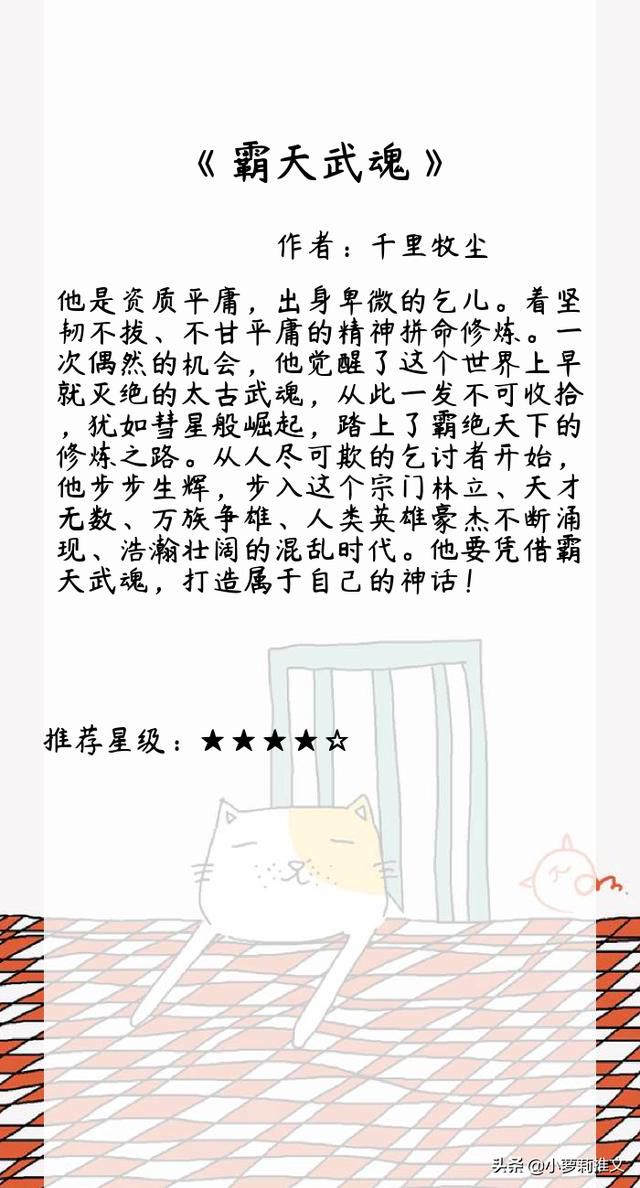 《霸天武魂》
作者：千里牧尘
他是资质平庸，出身卑微的乞儿。着坚
韧不拔、不甘平庸的精神拼命修炼。一
次偶然的机会，他觉醒了这个世界上早
就灭绝的太古武魂，从此一发不可收拾
，犹如彗星般崛起，踏上了霸绝天下的
修炼之路。从人尽可欺的乞讨者开始，
他步步生辉，步入这个宗门林立、天才
无数、万族争雄、人类英雄豪杰不断涌
现、浩瀚壮阔的混乱时代。他要凭借霸
天武魂，打造属于自己的神话！
推荐星级：★★★★☆
头条 @小萝莉推文